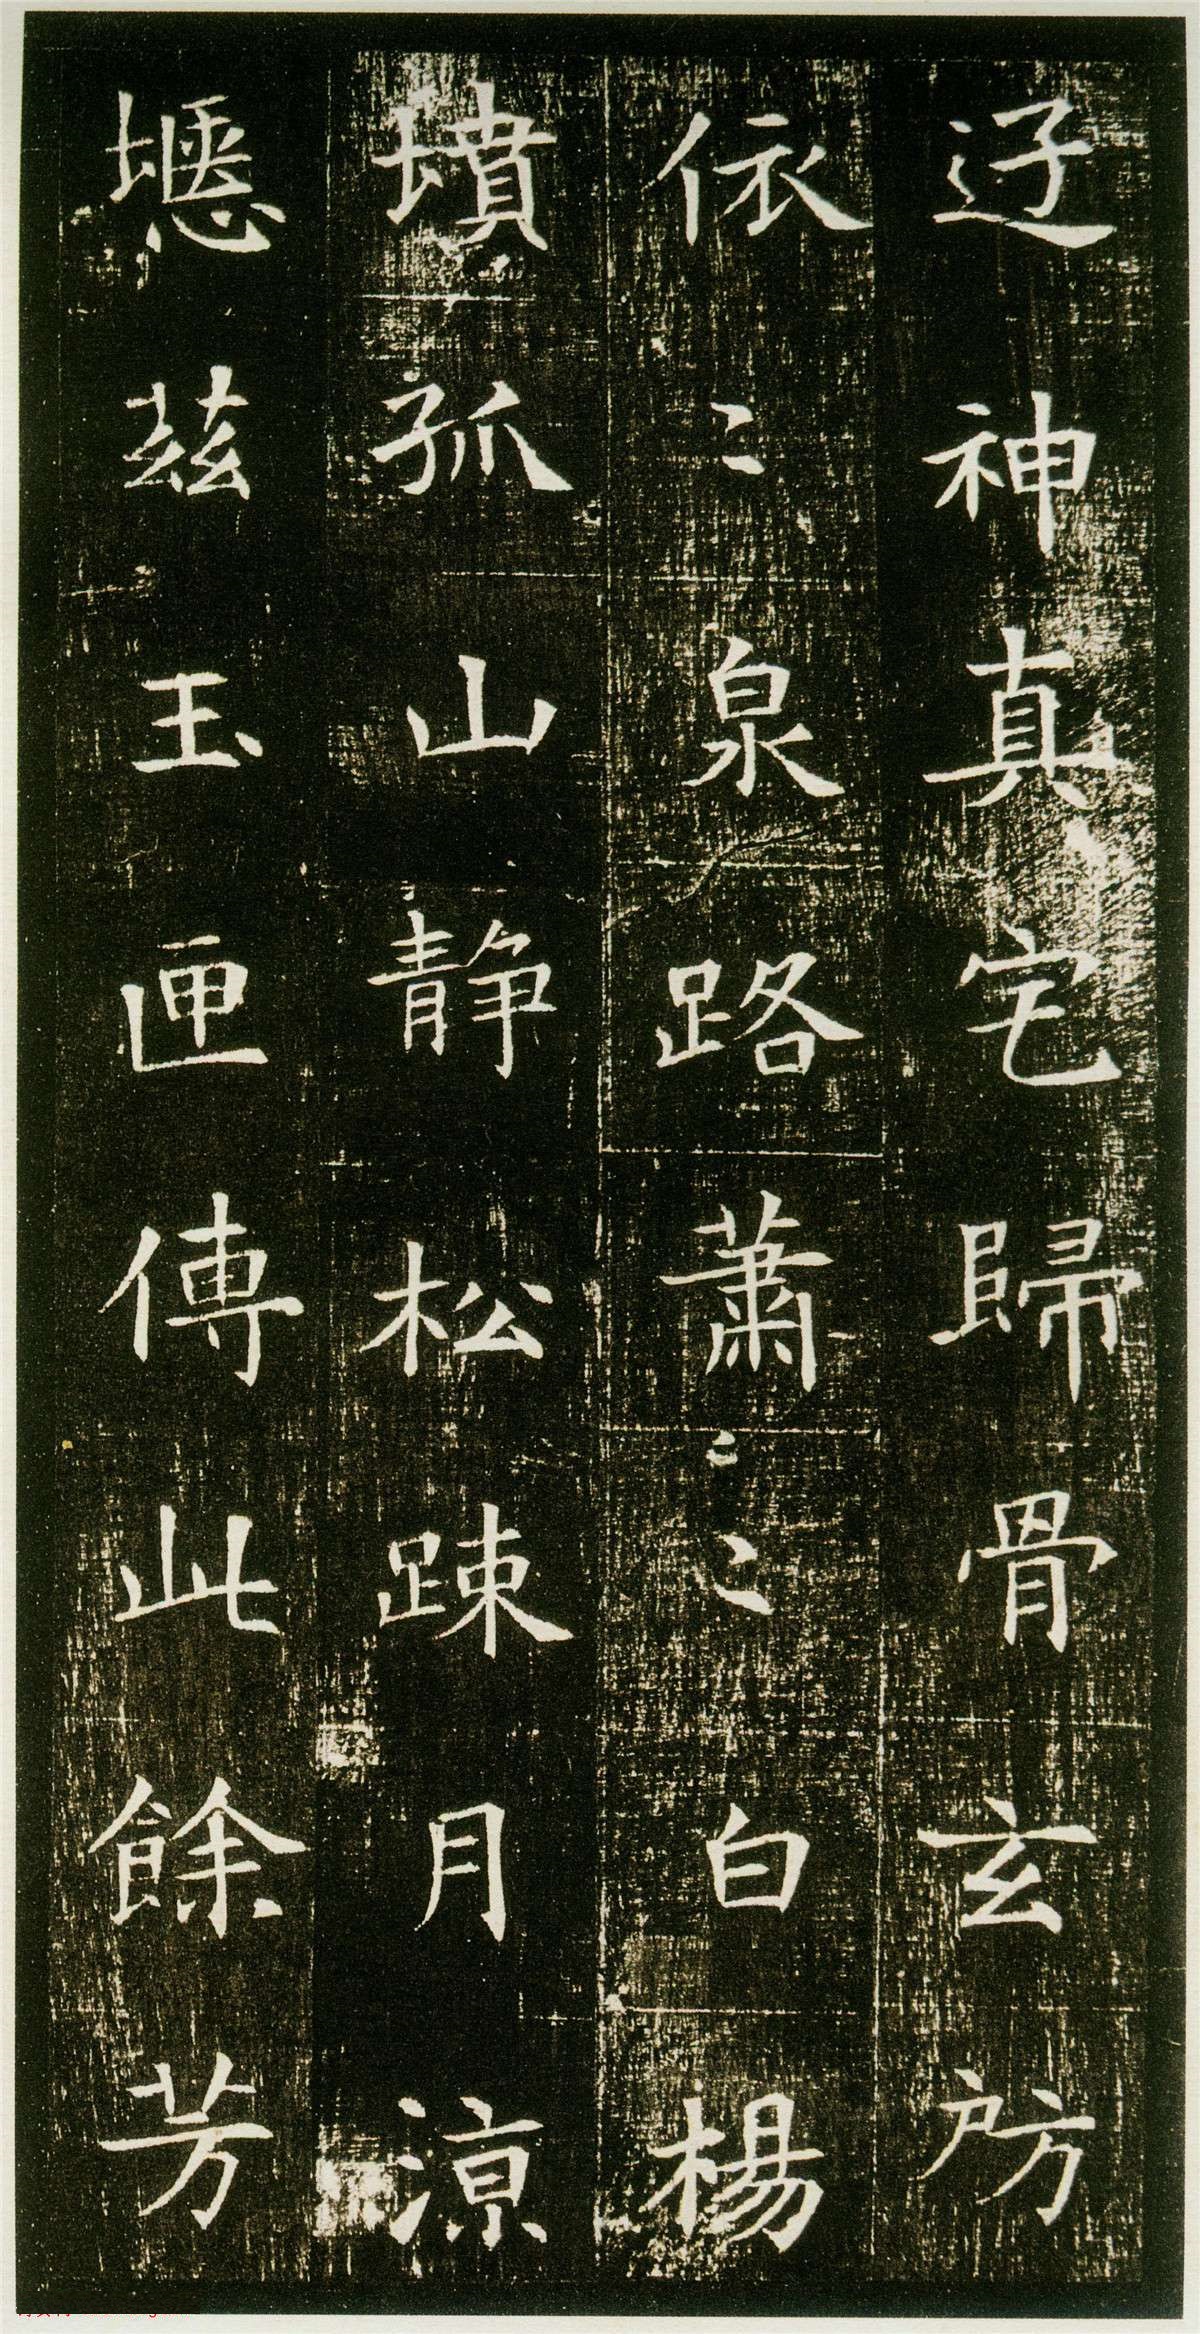 迂神真宅歸骨玄房
依〻泉路蕭〻白楊
墳孤山静松踈月涼
堙茲玉匣傳此餘芳